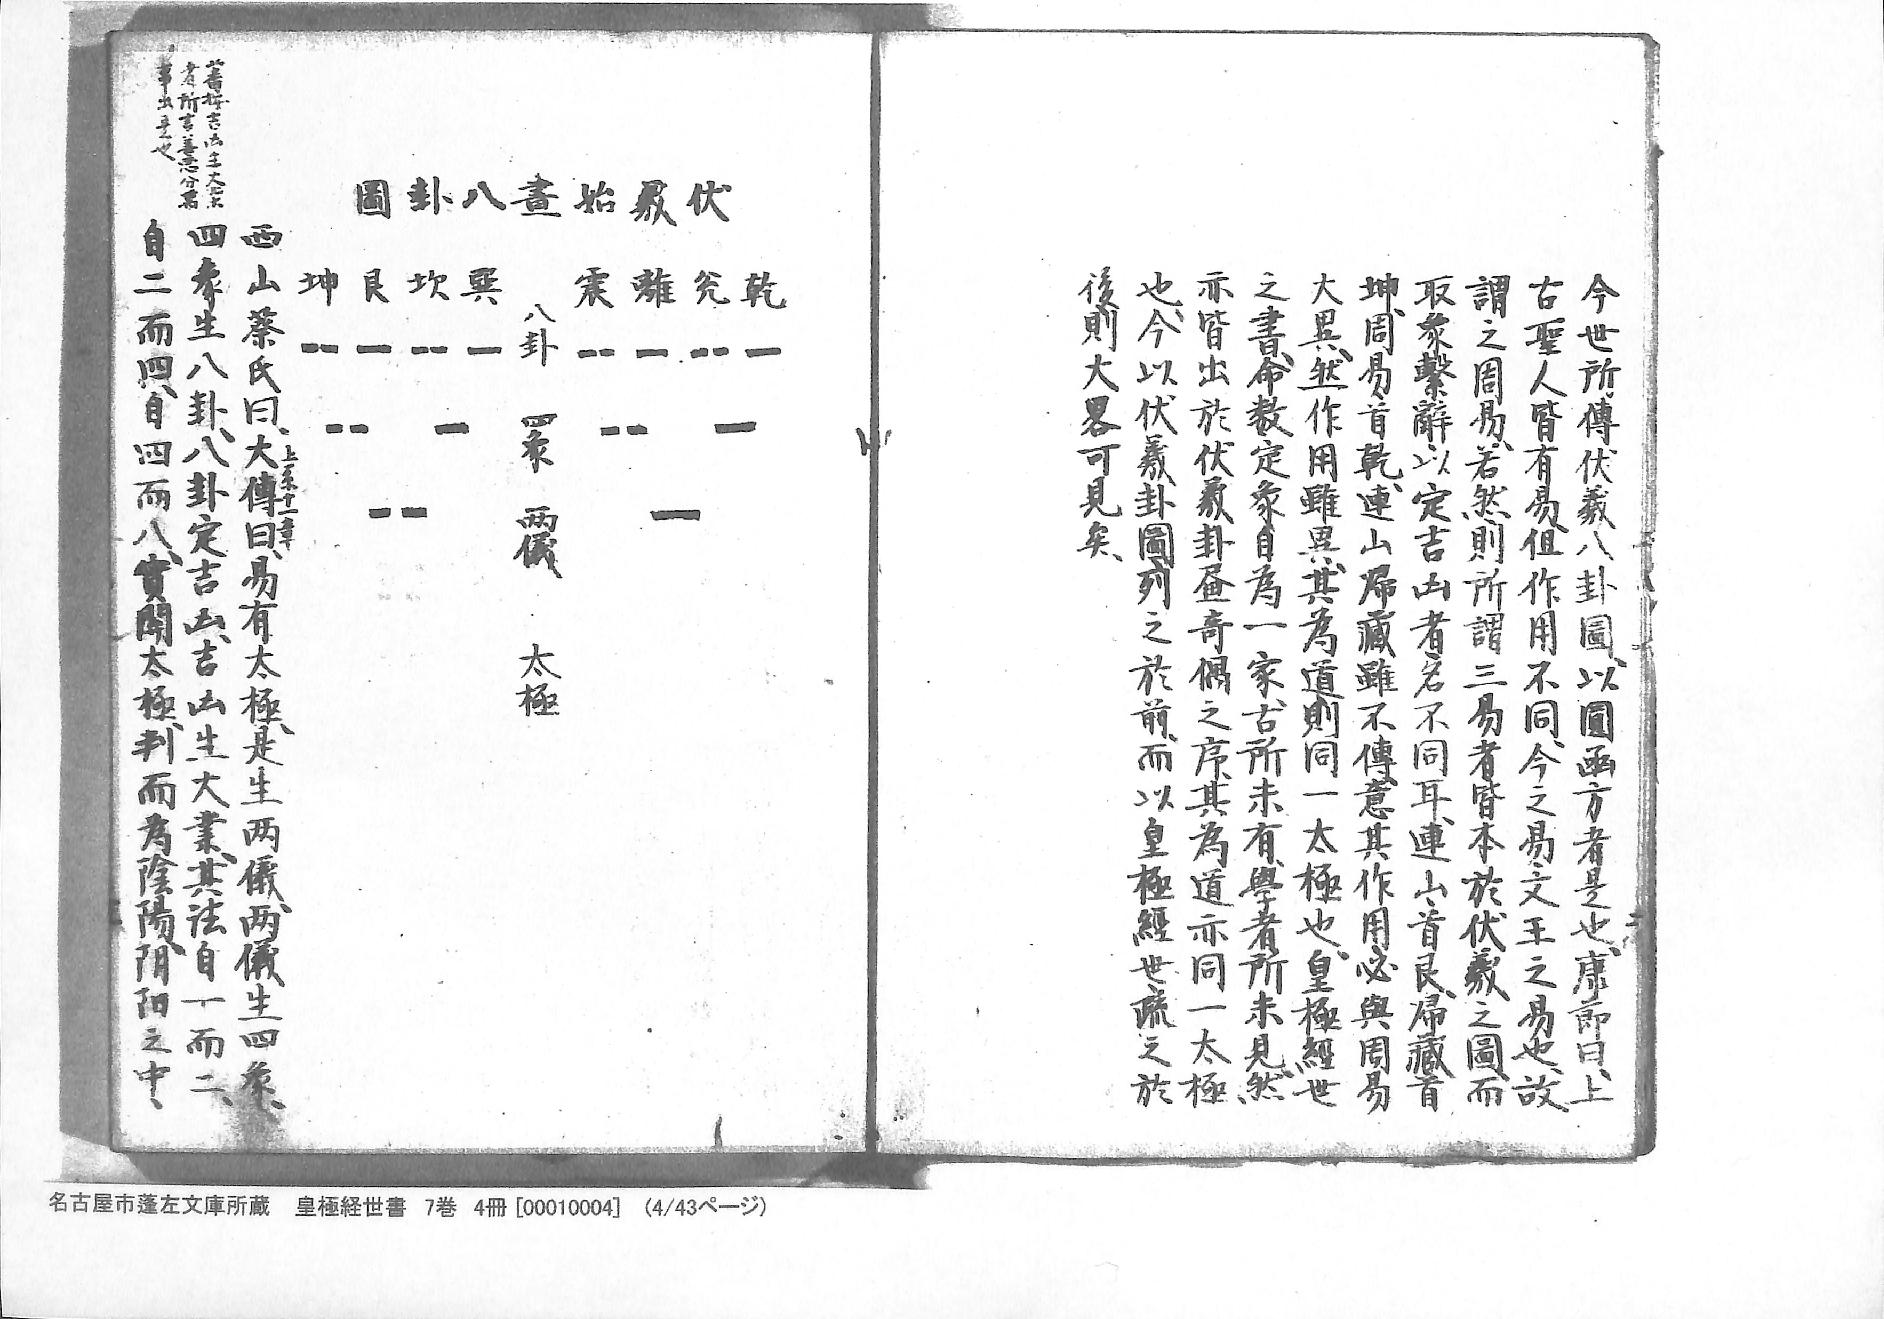 今世所傳伏羲八卦圖、以圓函方者是也、康節曰、上
古聖人皆有易、但作用不同、今之易、文王之易也、故
謂之周易、若然則所謂三易者皆本於伏羲之圖、而
取象繫辭以定吉凶者名不同耳、連山首艮、歸藏首
坤、周易首乾、連山歸藏雖不傳、意其作用必與周易
大異、然作用雖異、其為道則同一太極也、皇極經世
之書、命数定象自為一家、古所未有、學者所未見、然
亦皆出於伏羲卦畫奇偶之序、其為道亦同一太極
也、今以伏羲卦圖列之於前、而以皇極經世疏之於
後、則大畧可見矣、
伏羲始畫八卦圖
乾 兊 離 震 八卦 巽 坎 艮 坤
四象
兩儀
太極
西山蔡氏曰、大傳曰、易有太極、是生两儀、两儀生四象、
上系十一章
四象生八卦、八卦定吉凶、吉凶生大業、其法自一而二、
自二而四、自四而八、實闢太極、判而為陰陽、阴阳之中、
者所言善惡分
事出是也
名古屋市蓬左文庫所蔵 皇極経世書 7巻 4冊 [00010004] (4/43ページ)